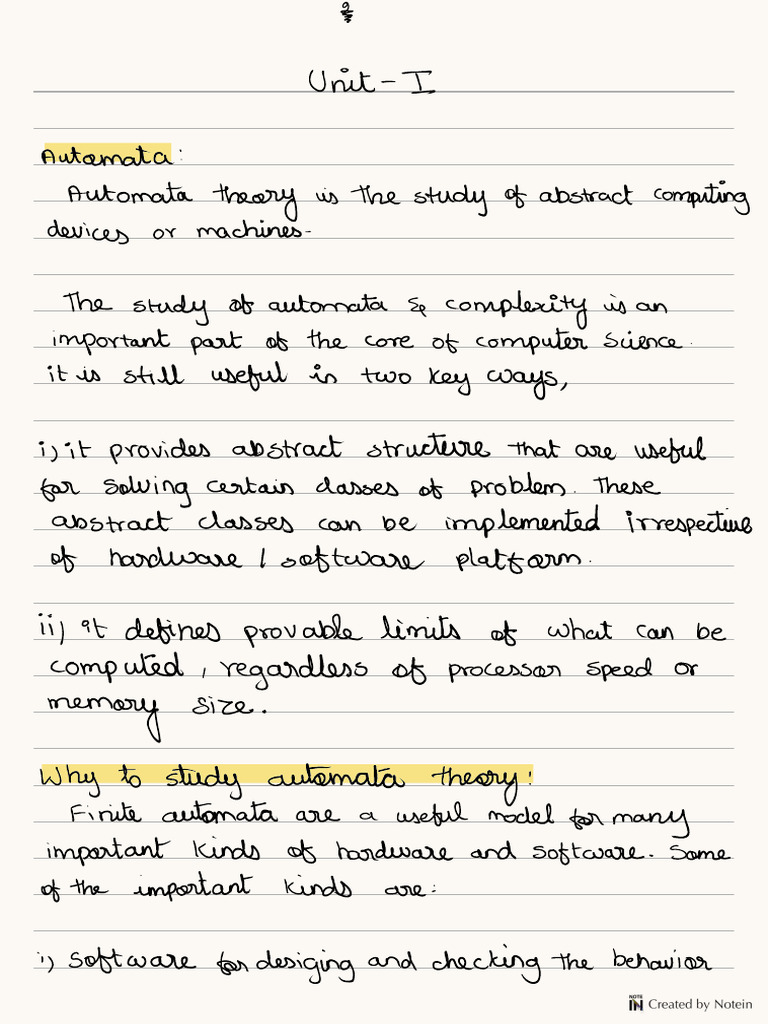 Unit - I
Automata:
Automata theory is the study of abstract computing
devices or machines.
The study of automata & complexity is an
important part of the core of computer science.
it is still useful in two key ways,
i) it provides abstract structure that are useful
for solving certain classes of problem. These
abstract classes can be implemented irrespective
of hardware / software platform.
ii) It defines provable limits of what can be
computed, regardless of processor speed or
memory size.
Why to study automata theory:
Finite automata are a useful model for many
important kinds of hardware and software. Some
of the important kinds are:
i) Software for desiging and checking the behavior
NOTE IN Created by Notein